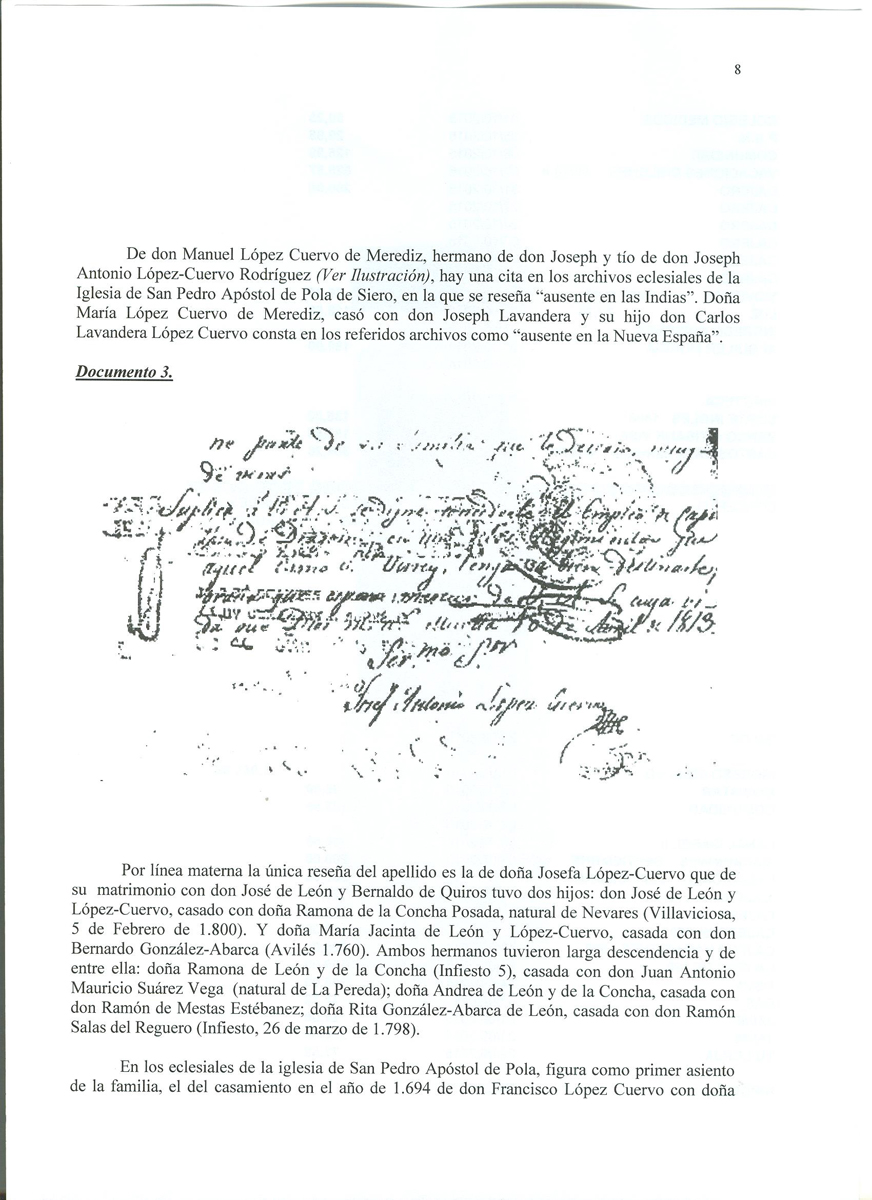 8
De don Manuel López Cuervo de Merediz, hermano de don Joseph y tío de don Joseph
Antonio López-Cuervo Rodríguez (Ver Ilustración), hay una cita en los archivos eclesiales de la
Iglesia de San Pedro Apóstol de Pola de Siero, en la que se reseña “ausente en las Indias”. Doña
María López Cuervo de Merediz, casó con don Joseph Lavandera y su hijo don Carlos
Lavandera López Cuervo consta en los referidos archivos como “ausente en la Nueva España”.
Documento 3.
ne parte de su familia que le
Suplica á V. A. S. se digne el Empleo de Capi
en uno de los
aquel como el Virrey, tenga destinarle;
cuya vi-
da que Dios 10 de Abril de 1813.
Ser.mo S.or
Josef Antonio López Cuervo
Por línea materna la única reseña del apellido es la de doña Josefa López-Cuervo que de
su matrimonio con don José de León y Bernaldo de Quiros tuvo dos hijos: don José de León y
López-Cuervo, casado con doña Ramona de la Concha Posada, natural de Nevares (Villaviciosa,
5 de Febrero de 1.800). Y doña María Jacinta de León y López-Cuervo, casada con don
Bernardo González-Abarca (Avilés 1.760). Ambos hermanos tuvieron larga descendencia y de
entre ella: doña Ramona de León y de la Concha (Infiesto 5), casada con don Juan Antonio
Mauricio Suárez Vega (natural de La Pereda); doña Andrea de León y de la Concha, casada con
don Ramón de Mestas Estébanez; doña Rita González-Abarca de León, casada con don Ramón
Salas del Reguero (Infiesto, 26 de marzo de 1.798).
En los eclesiales de la iglesia de San Pedro Apóstol de Pola, figura como primer asiento
de la familia, el del casamiento en el año de 1.694 de don Francisco López Cuervo con doña